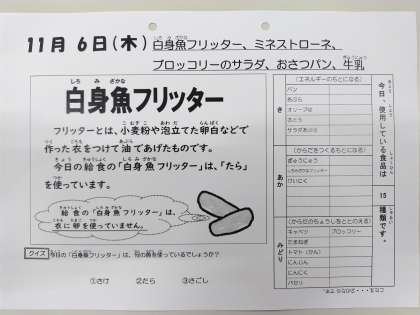 11月 6日(木) 白身魚フリッター、ミネストローネ、
ブロッコリーのサラダ、おさつパン、牛乳
白身魚フリッター
フリッターとは、小麦粉や泡立てた卵白などで
作った衣をつけて油であげたものです。
今日の給食の「白身魚フリッター」は、「たら」
を使っています。
給食の「白身魚フリッター」は、
衣に卵を使っていません。
クイズ 今日の「白身魚フリッター」は、何の魚を使っているでしょうか?
①さけ ②たら ③さごし
(エネルギーのもとになる)
き
パン
あぶら
オリーブ油
さとう
サラダあぶら
(からだをつくるもとになる)
あか
ぎゅうにゅう
しろみざかなフリッター
けいにく
(からだのちょうしをととのえる)
みどり
キャベツ ブロッコリー
たまねぎ
トマト(かん)
にんじん
にんにく
パセリ
今日、使用している食品は 15 種類です。